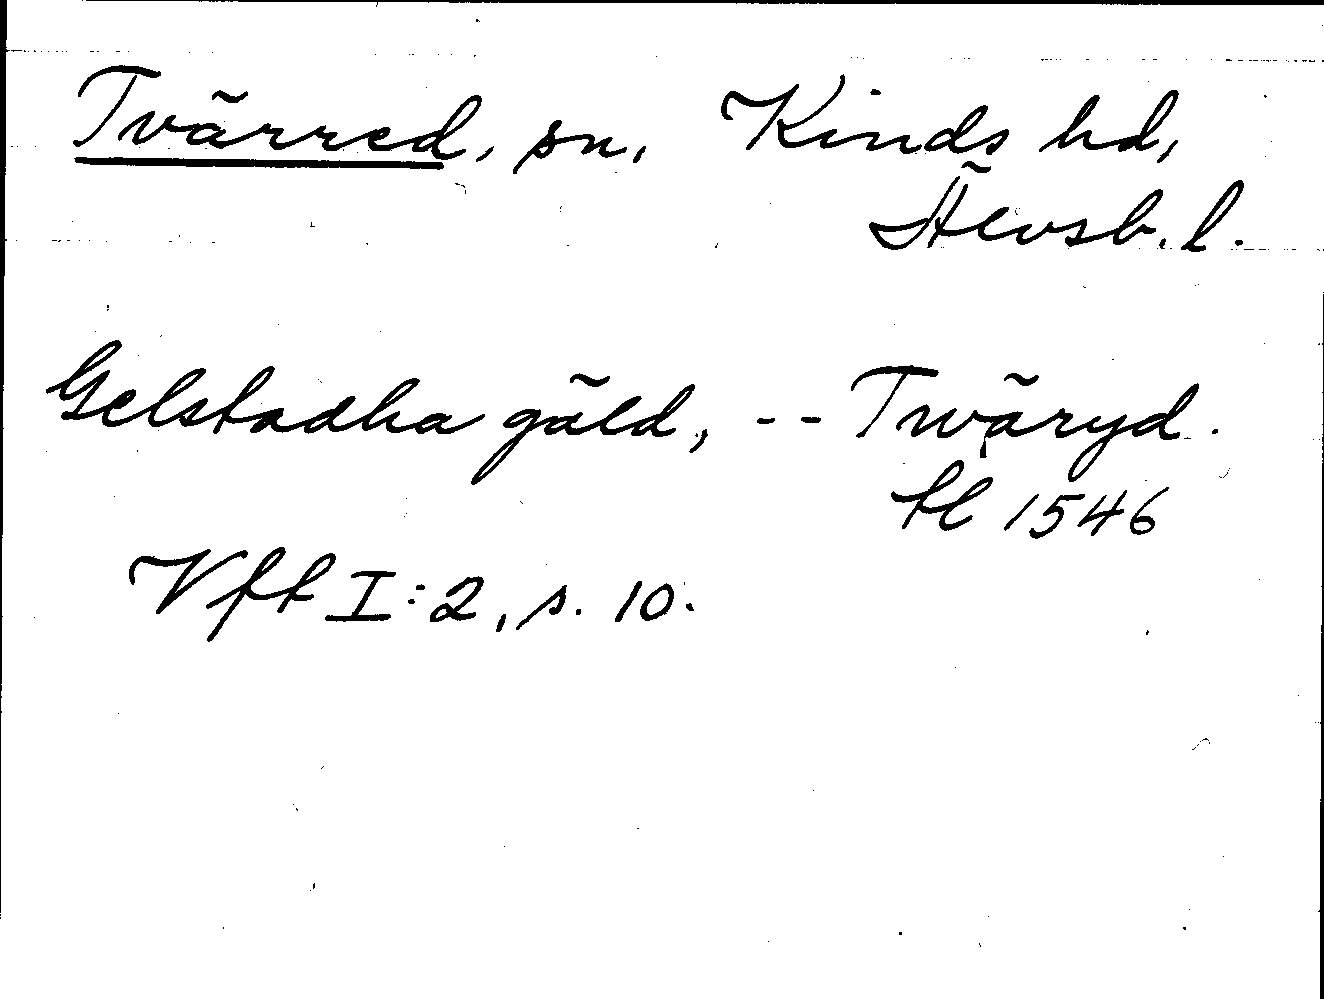 Tvärred, sn, Kinds hd,
Älvsb. l.
Gelstadha gäld, -- Twäryd.
tl 1546
Vft I:2, s. 10.